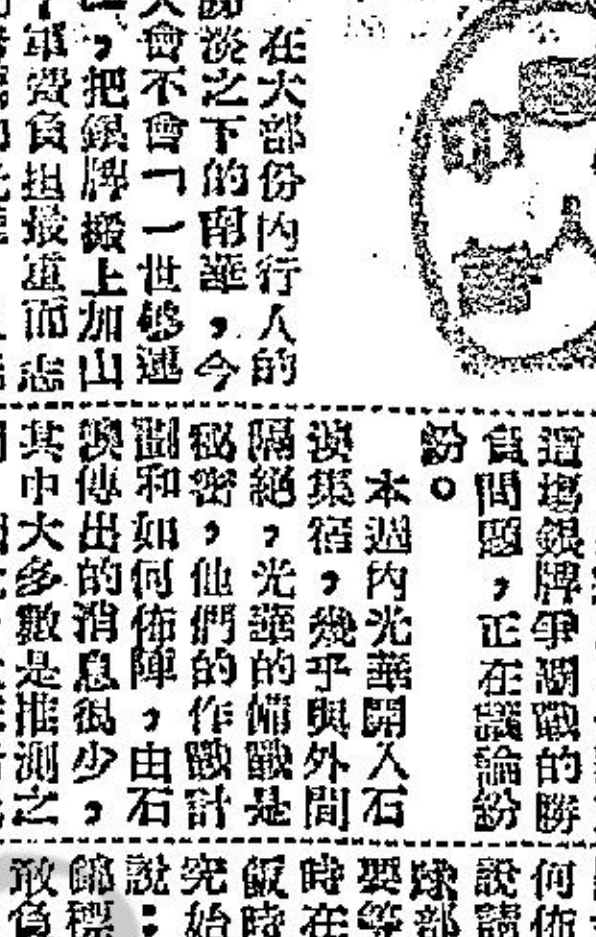 在大部份內行人的
淡之下的南華，今
會不會「一世夠運
，把銀牌搬上加山
軍費負担最重而志
這塲銀牌爭濶戰的勝
負問題，正在議論紛
紛。
本週內光華開入石
澳集宿，幾乎與外間
隔絕，光華的備戰是
秘密，他們的作戰計
劃和如何佈陣，由石
澳傳出的消息很少，
其中大多數是推測之
何佈
說請
球部
要等
時在
飯時
究始
說：
錦標
敢負